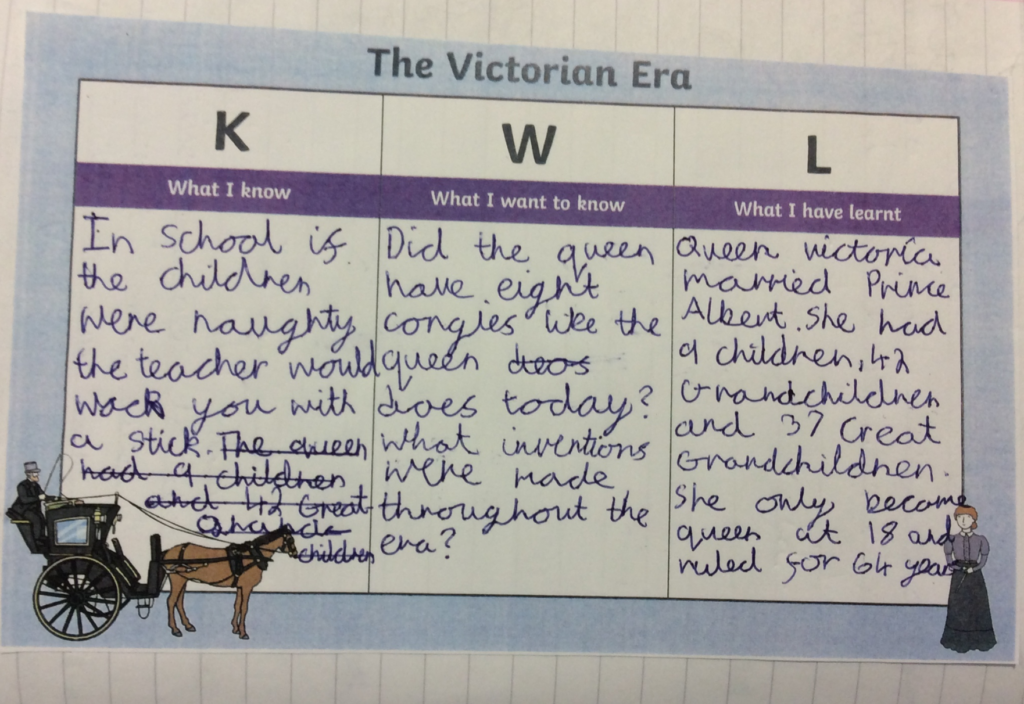 The Victorian Era
K
What I know
In school if
the children
were naughty
the teacher would
wack you with
a stick. The queen
had 9 children
and 42 Great
Grand
children
W
What I want to know
Did the queen
have eight
congies like the
queen deos
does today?
What inventions
were made
throughout the
era?
L
What I have learnt
Queen victoria
married Prince
Albert. She had
9 children, 42
Grandchildren
and 37 Great
Grandchildren.
She only became
queen at 18 and
ruled for 64 years